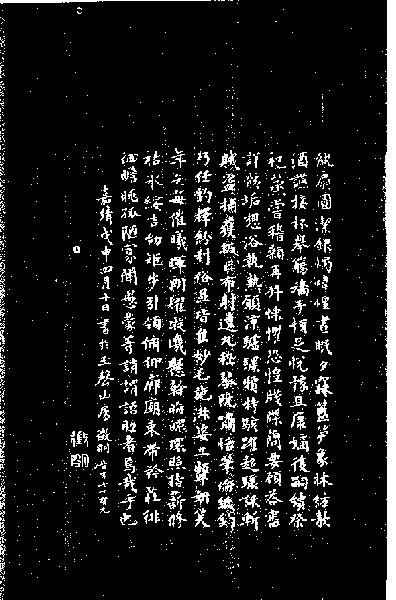 紈扇圓潔銀燭煒煌晝眠夕寐藍笋象床弦歌
酒讌接杯舉觴矯手頓足悅豫且康嫡後嗣續祭
祀蒸嘗稽顙再拜悚懼恐惶牋牒簡要顧答審
詳骸垢想浴執熱願涼驢騾犢特駭躍超驤誅斬
賊盜捕獲叛亡布射遼丸嵇琴阮嘯恬筆倫紙鈞
巧任釣釋紛利俗並皆佳妙毛施淑姿工顰妍笑
年矢每催曦暉朗耀琁璣懸斡晦魄環照指薪修
祜永綏吉劭矩步引領俯仰廊廟束帶矜莊徘
徊瞻眺孤陋寡聞愚蒙等誚謂語助者焉哉乎也
嘉靖戊申四月十日書於玉磬山房徵明時年七十九
徵明